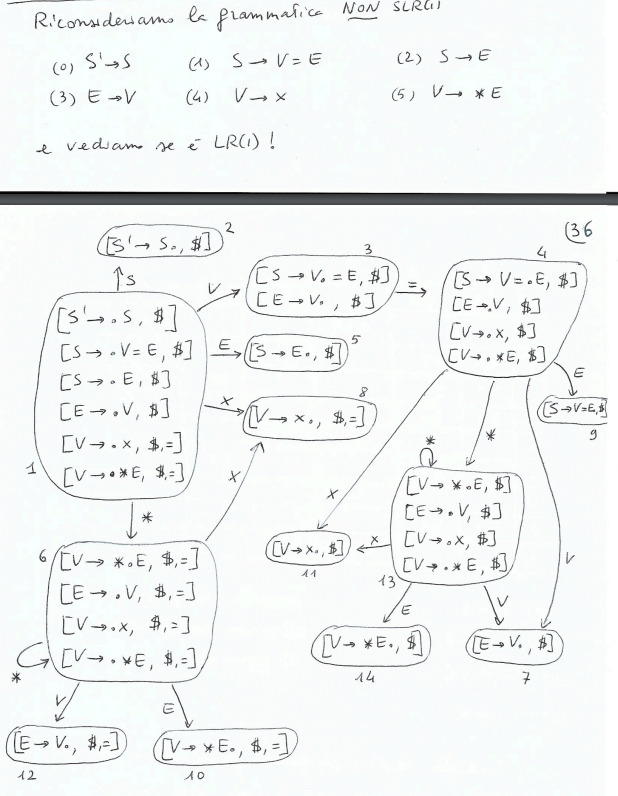 Riconsideriamo la grammatica NON SLR(1)
(0) S'→S (1) S → V = E (2) S → E
(3) E → V (4) V → x (5) V → * E
e vediamo se è LR(1) !
(36
[S' → S., $] 2
S
1
[S' → .S, $]
[S → .V = E, $]
[S → .E, $]
[E → .V, $]
[V → .x, $,=]
[V → .*E, $,=]
V
3
[S → V. = E, $]
[E → V., $]
=
4
[S → V = .E, $]
[E → .V, $]
[V → .x, $]
[V → .*E, $]
E
[S → E., $] 5
x
8
[V → x., $,=]
E
[S → V=E, $
9
*
6
[V → *.E, $,=]
[E → .V, $,=]
[V → .x, $,=]
[V → .*E, $,=]
*
x
x
*
V
*
13
[V → *.E, $]
[E → .V, $]
[V → .x, $]
[V → .*E, $]
x
[V → x., $]
11
E
V
[V → *E., $]
14
[E → V., $]
7
V
E
[E → V., $,=]
12
[V → *E., $,=]
10